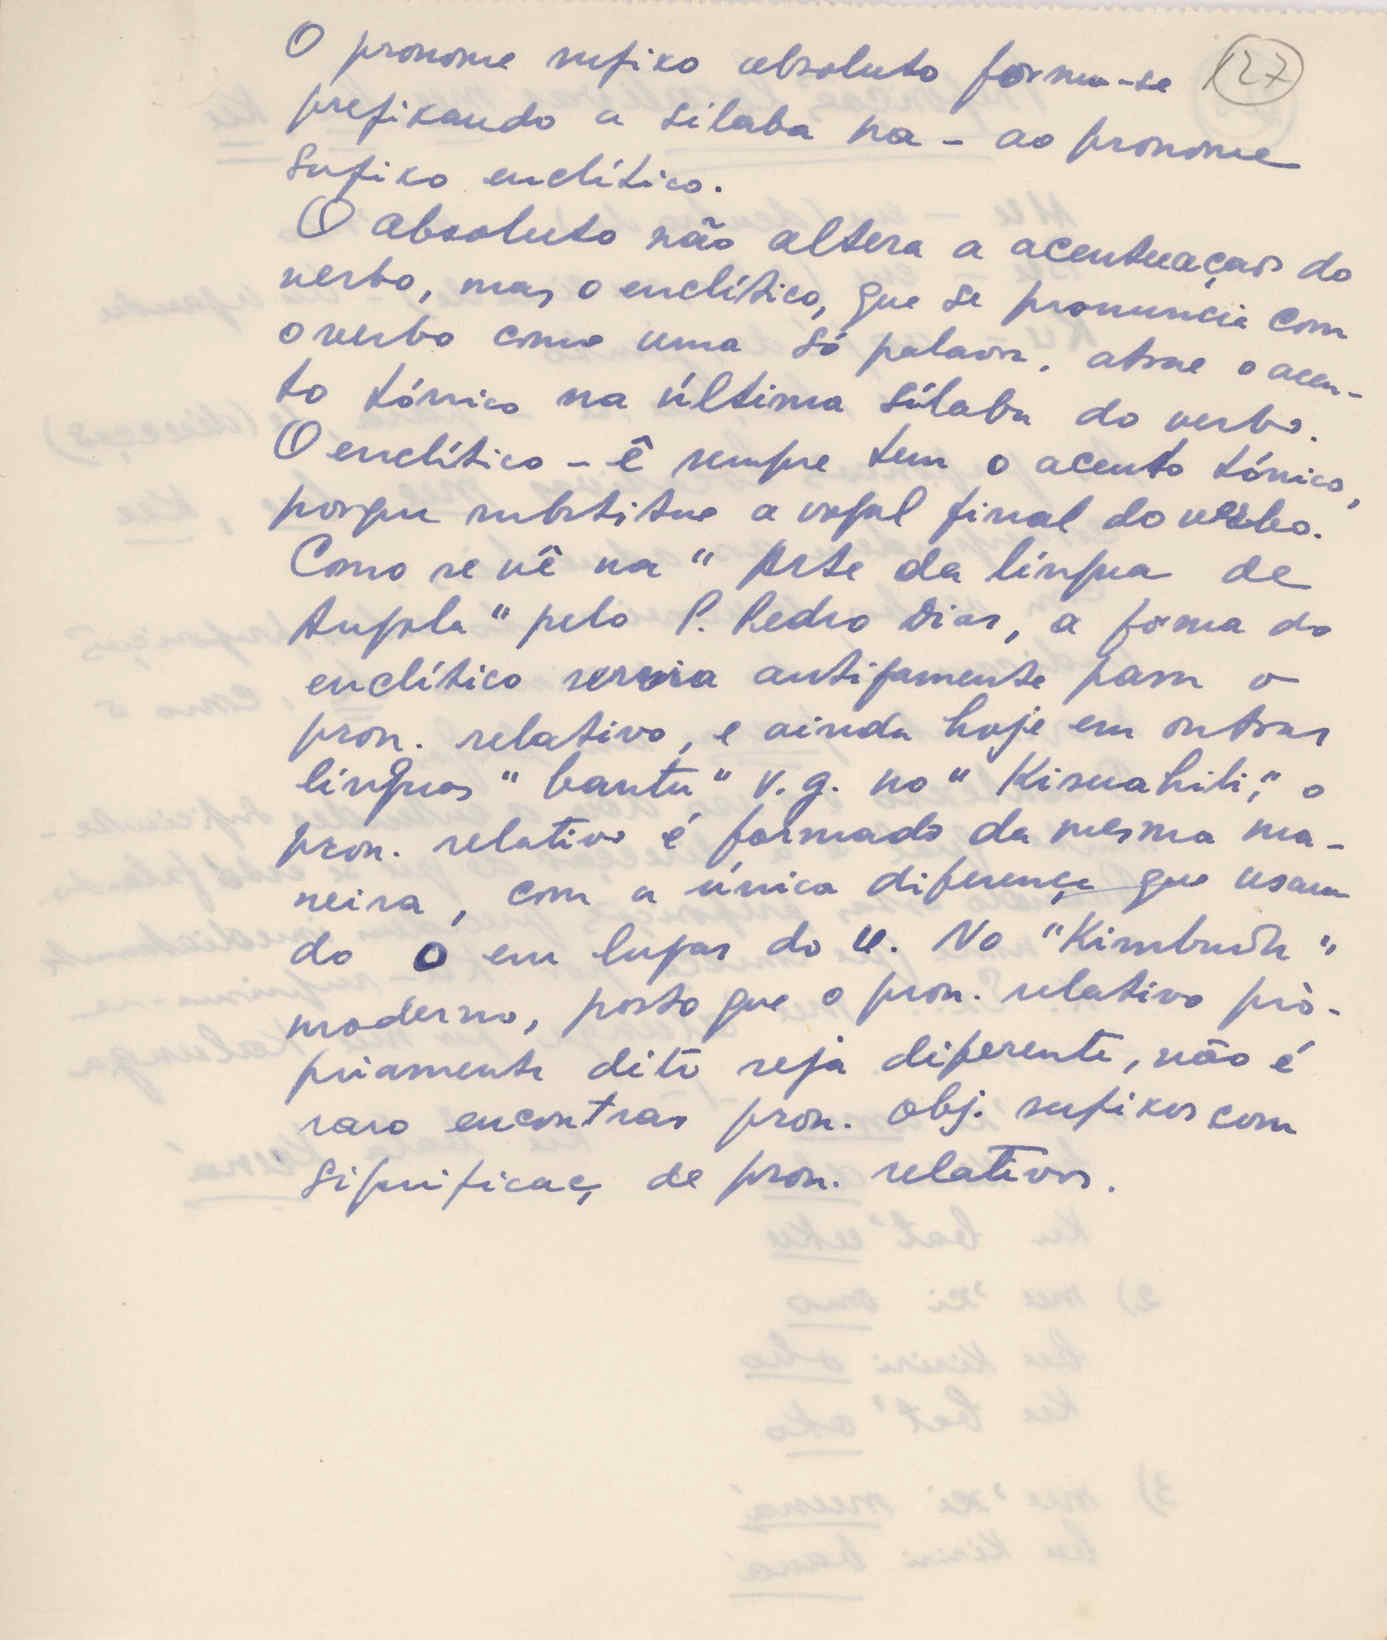 127
O pronome sufixo absoluto forma-se
prefixando a sílaba na - ao pronome
sufixo enclítico.
O absoluto não altera a acentuação do
verbo, mas o enclítico, que se pronuncia com
o verbo como uma só palavra, atrae o acen-
to tónico na última sílaba do verbo.
O enclítico - ê sempre tem o acento tónico,
porque substitue a vogal final do verbo.
Como se vê na " Arte da língua de
Angola " pelo P. Pedro Dias, a forma do
enclítico servia antigamente para o
pron. relativo, e ainda hoje em outras
línguas " bantu " v.g. no " Kisuahili ", o
pron. relativo é formado da mesma ma-
neira, com a única diferença que usam
do O em lugar do U. No " Kimbundu "
moderno, posto que o pron. relativo prò-
priamente dito seja diferente, não é
raro encontrar pron. obj. sufixos com
significaç de pron. relativos.